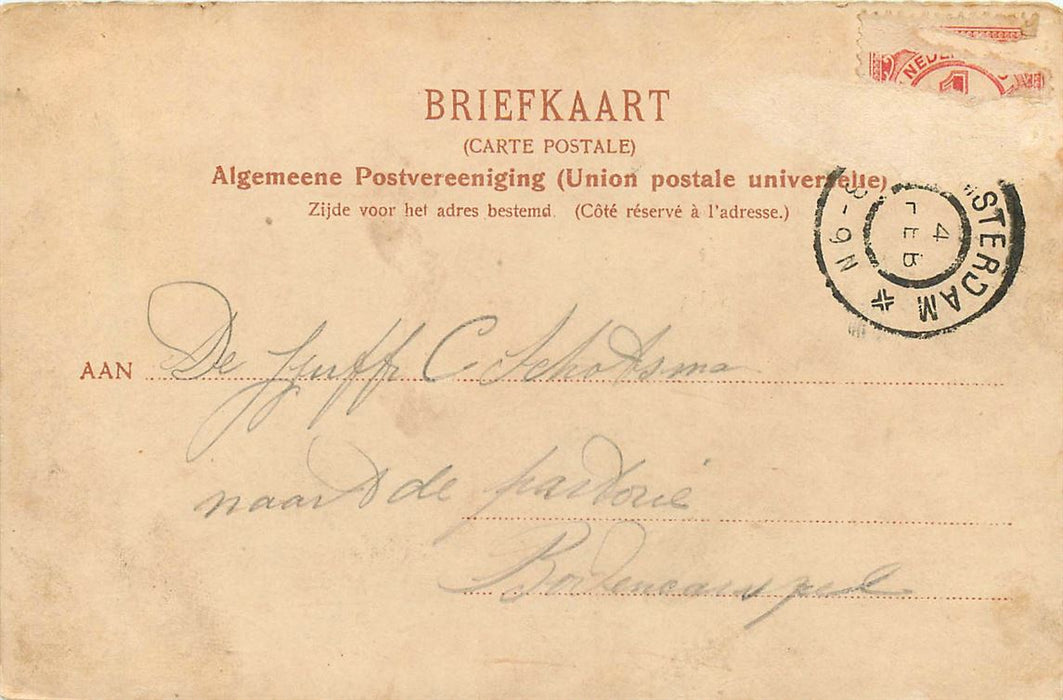 BRIEFKAART
(CARTE POSTALE)
Algemeene Postvereeniging (Union postale universelle)
Zijde voor het adres bestemd. (Côté réservé à l'adresse.)
NEDER
1
STERDAM
8-9N
4
FEB
AAN De Jjuffr C Schotsma
naast de pastorie